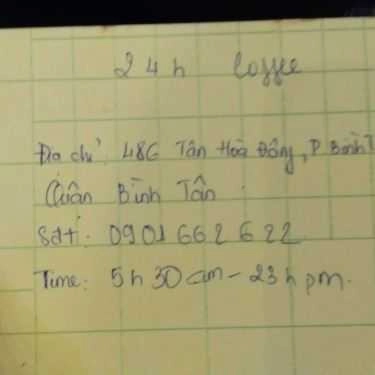 24h Coffee
Địa chỉ: 486 Tân Hoà Đông, P Bình T
Quận Bình Tân.
Sđt: 0901 662 622
Time: 5h 30 am - 23h pm.